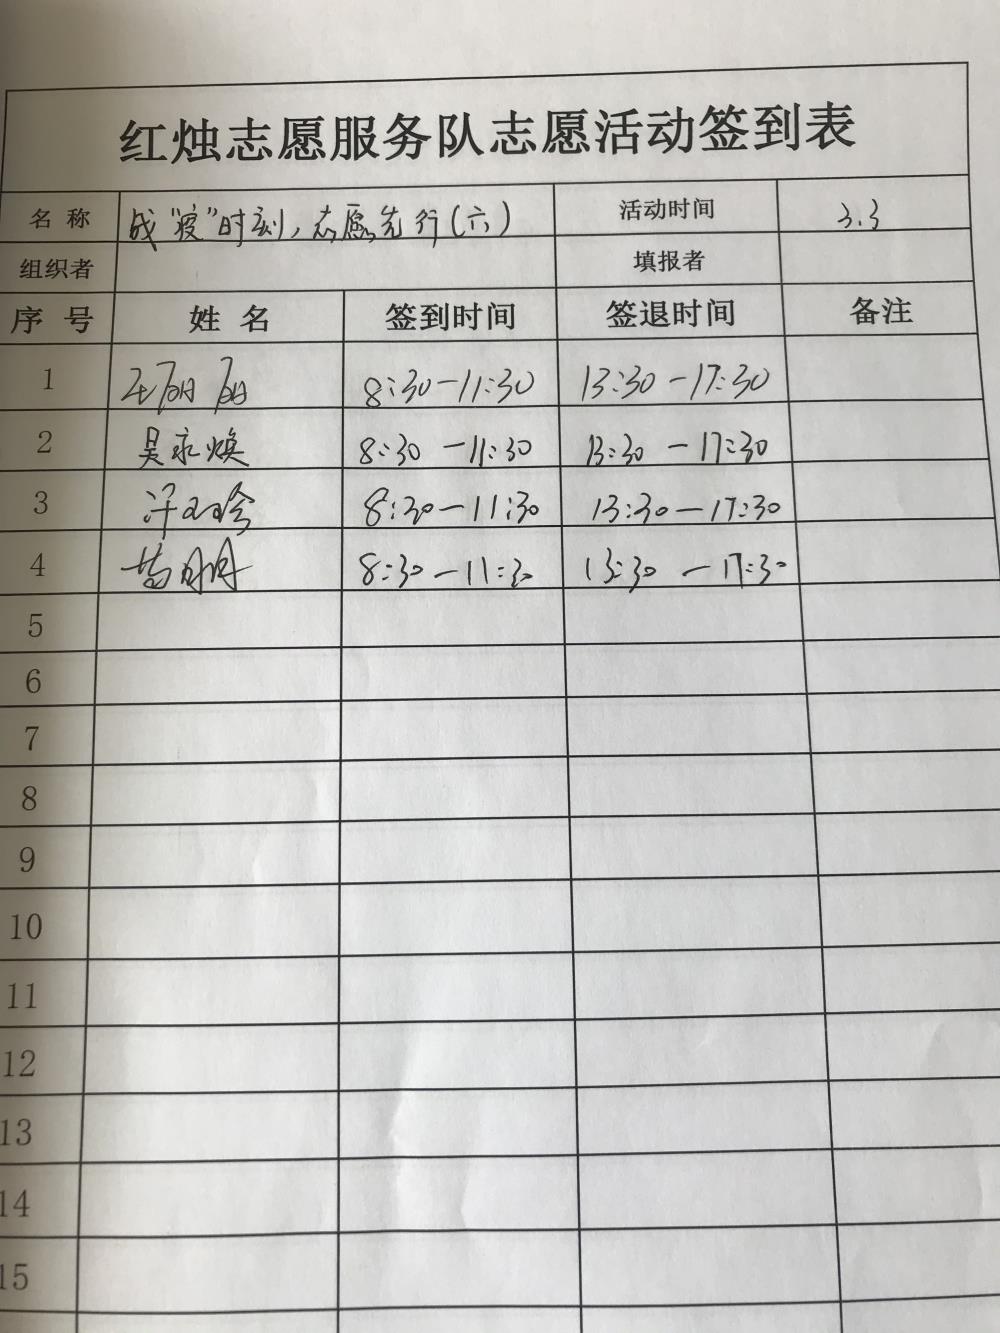 红烛志愿服务队志愿活动签到表
名称 战"疫"时刻，志愿先行（六） 活动时间 3.3
组织者 填报者
序号 姓名 签到时间 签退时间 备注
1 8:30-11:30 13:30-17:30
2 吴永焕 8:30-11:30 13:30-17:30
3 8:30-11:30 13:30-17:30
4 8:30-11:30 13:30-17:30
5
6
7
8
9
10
11
12
13
14
15